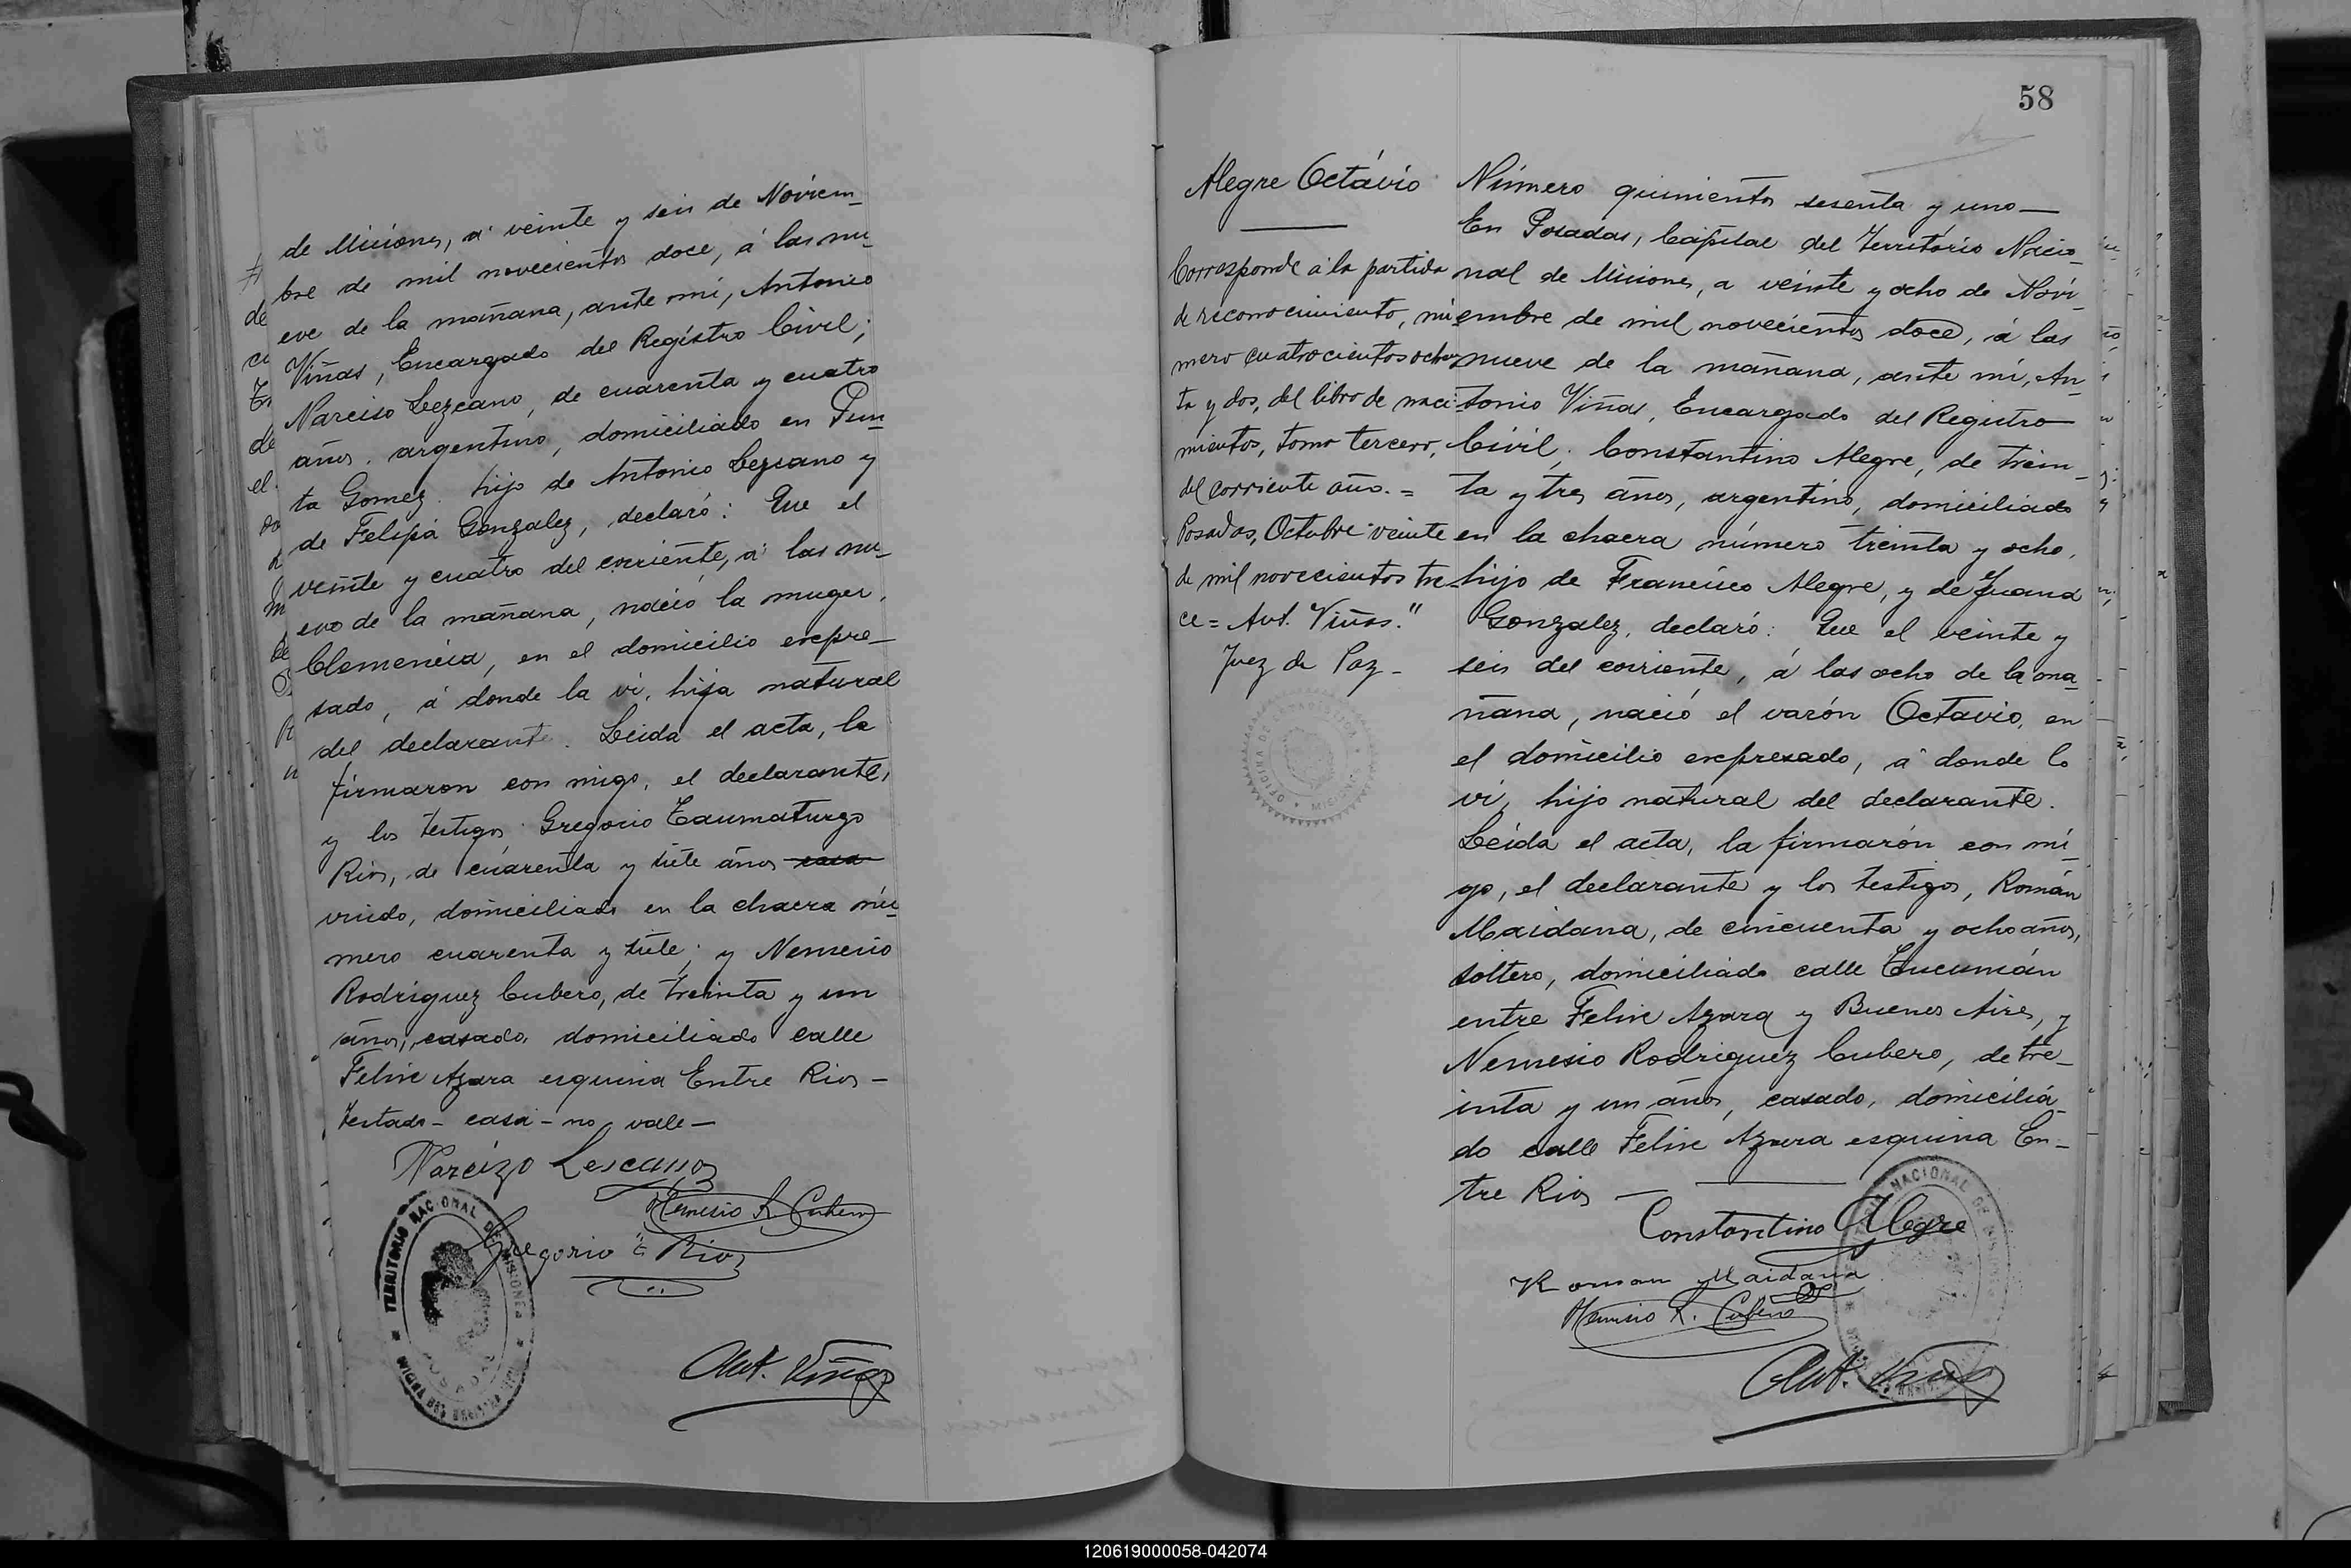 de Misiones, á veinte y seis de Noviem-
bre de mil novecientos doce, á las nu-
eve de la mañana, ante mí, Antonio
Viñas, Encargado del Registro Civil;
Narciso Lezcano, de cuarenta y cuatro
años, argentino, domiciliado en Pun-
ta Gomez, hijo de Antonio Lezcano y
de Felipa Gonzalez, declaró: Que el
veinte y cuatro del corriente, á las nu-
eve de la mañana, nació la muger,
Clemencia, en el domicilio expre-
sado, á donde la ví, hija natural
del declarante. Leida el acta, la
firmaron con migo, el declarante,
y los testigos Gregorio Taumaturgo
Rios, de cuarenta y siete años casa
viudo, domiciliado en la chacra nú-
mero cuarenta y siete; y Nemesio
Rodriguez Cubero, de treinta y un
años, casado, domiciliado calle
Felix Azara esquina Entre Rios -
Testado - casa - no vale -
Narcizo Lescano
Nemesio R. Cubero
Gregorio T. Rios
TERRITORIO NACIONAL DE MISIONES
POSADAS
Ant. Viñas
58
Alegre Octávio
Corresponde á la partida
de reconocimiento, nú-
mero cuatrocientos ochen-
ta y dos, del libro de naci-
mientos, tomo tercero,
del corriente año. =
Posadas, Octubre veinte
de mil novecientos tre-
ce = Ant. Viñas."
Juez de Paz -
OFICINA DE
MISIONES
Número quinientos sesenta y uno -
En Posadas, Cápital del Territorio Nacio-
nal de Misiones, a veinte y ocho de Novi-
embre de mil novecientos doce, á las
nueve de la mañana, ante mí, An-
tonio Viñas, Encargado del Registro
Civil; Constantino Alegre, de trein-
ta y tres años, argentino, domiciliado
en la chacra número treinta y ocho,
hijo de Francisco Alegre, y de Juana
Gonzalez, declaró: Que el veinte y
seis del corriente, á las ocho de la ma-
ñana, nació el varón Octavio, en
el domicilio expresado, á donde lo
ví, hijo natural del declarante.
Leída el acta, la firmarón con mí-
go, el declarante y los testigos, Román
Maidana, de cincuenta y ocho años,
soltero, domiciliado calle Tucumán
entre Felix Azara y Buenos Aires, y
Nemesio Rodriguez Cubero, de tre-
inta y un años, casado, domicilia-
do calle Felix Azara esquina En-
tre Rios -
Constantino Alegre
Roman Maidana
Nemesio R. Cubero
NACIONAL DE MISIONES
Ant. Viñas
120619000058-042074